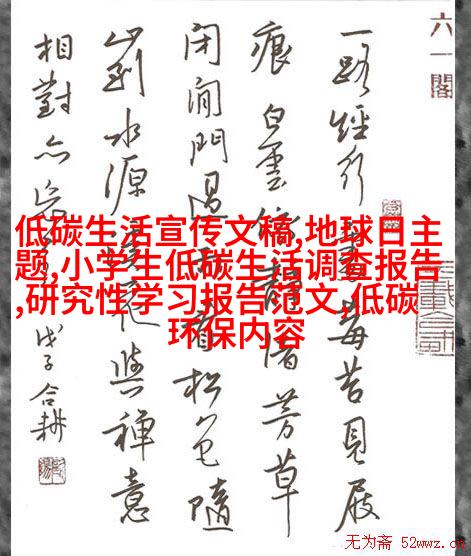 六一閣
一路經行處莓苔見屐
痕白雲依靜渚芳草
閉閒門過雨看松色隨
山到水源溪花與禪意
相對亦忘言 戊子合耕
低碳生活宣传文稿,地球日主
题,小学生低碳生活调查报告
,研究性学习报告范文,低碳
环保内容
无为斋 52wwz.c